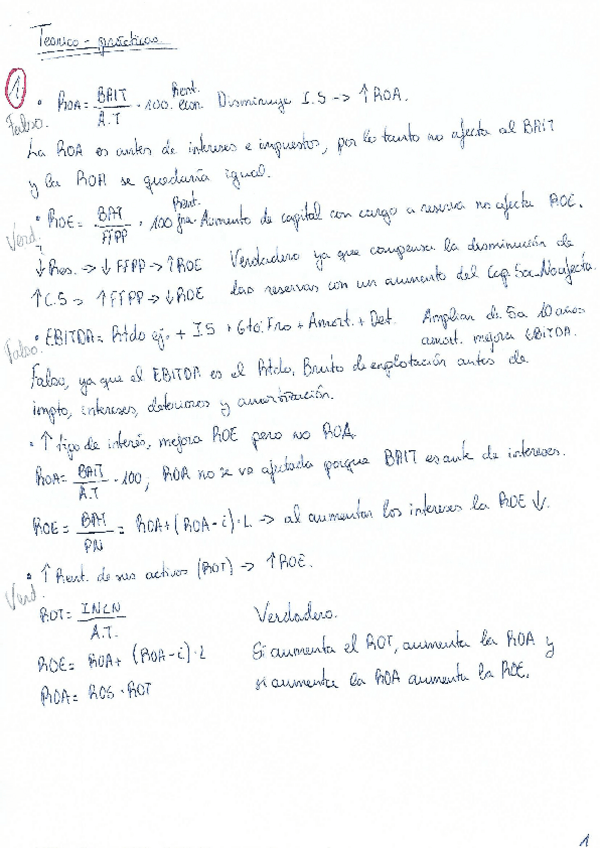 Teorico - prácticos
1
Falso.
• ROA = BAIT / A.T · 100. Rent. econ. Disminuye I.S -> ↑ ROA.
La ROA es antes de intereses e impuestos, por lo tanto no afecta al BAIT
y la ROA se quedaría igual.
Verd.
• ROE = BAT / FFPP · 100 Rent. fra. Aumento de capital con cargo a reserva no afecta ROE.
↓ Res. -> ↓ FFPP -> ↑ ROE Verdadero ya que compensa la disminución de
↑ C.S = ↑ FFPP -> ↓ ROE las reservas con un aumento del Cap. So. No afecta.
Falso.
• EBITDA = Rtdo ej. + I.S + Gto. Fro + Amort. + Det. Ampliar de 5 a 10 años
amort. mejora EBITDA.
Falso, ya que el EBITDA es el Rtdo. Bruto de explotación antes de
impto, intereses, deterioros y amortización.
• ↑ tipo de interés, mejora ROE pero no ROA
ROA = BAIT / A.T · 100; ROA no se ve afectada porque BAIT es ante de intereses.
ROE = BAT / PN = ROA + (ROA - i) · L -> al aumentar los intereses la ROE ↓.
• ↑ Rent. de sus activos (ROT) -> ↑ ROE.
Verd.
ROT = INCN / A.T. Verdadero.
ROE = ROA + (ROA - i) · L Si aumenta el ROT, aumenta la ROA y
ROA = ROS · ROT si aumenta la ROA aumenta la ROE.
1